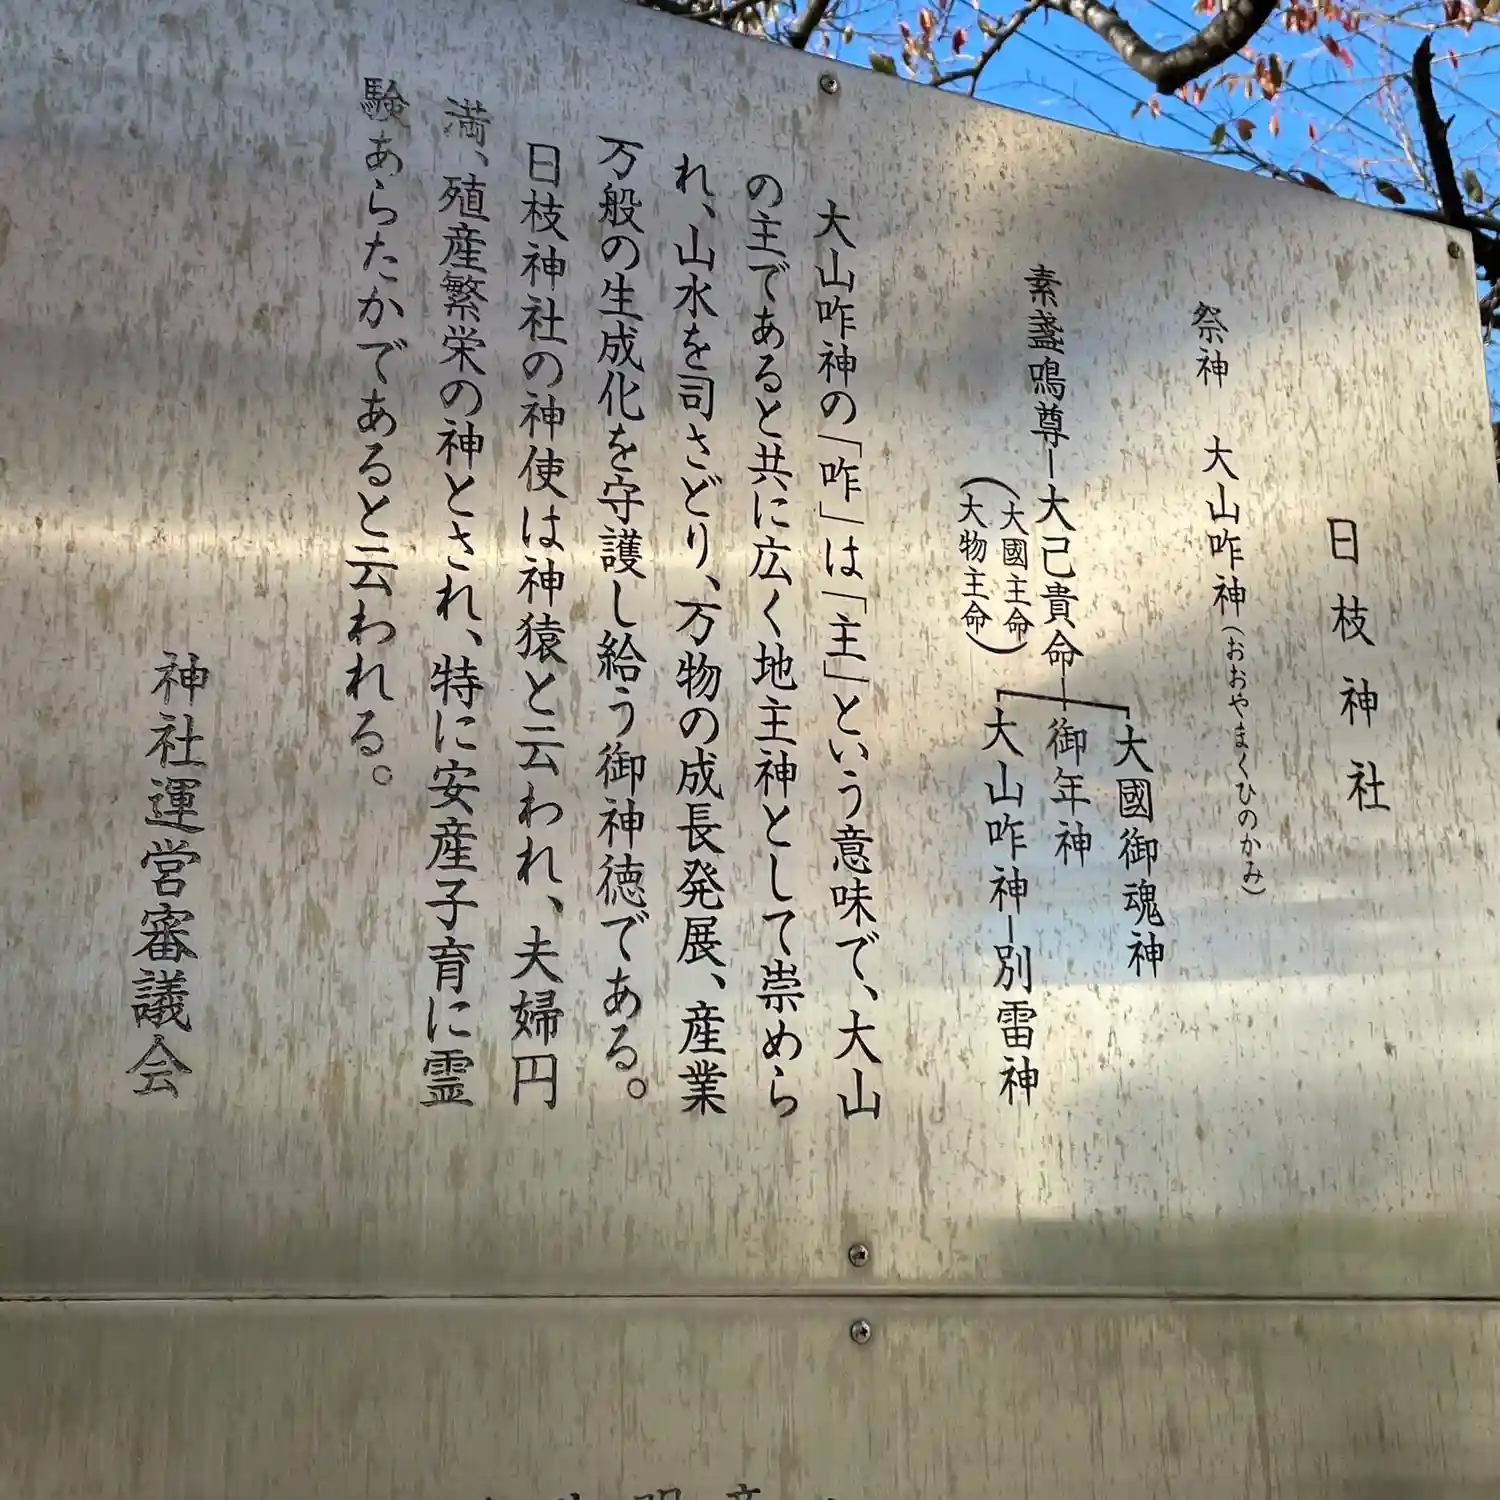 日枝神社
祭神　大山咋神（おおやまくひのかみ）
大國御魂神
素盞鳴尊―大己貴命―御年神
（大國主命）
（大物主命）
大山咋神―別雷神
大山咋神の「咋」は「主」という意味で、大山
の主であると共に広く地主神として崇めら
れ、山水を司さどり、万物の成長発展、産業
万般の生成化を守護し給う御神徳である。
日枝神社の神使は神猿と云われ、夫婦円
満、殖産繁栄の神とされ、特に安産子育に霊
験あらたかであると云われる。
神社運営審議会